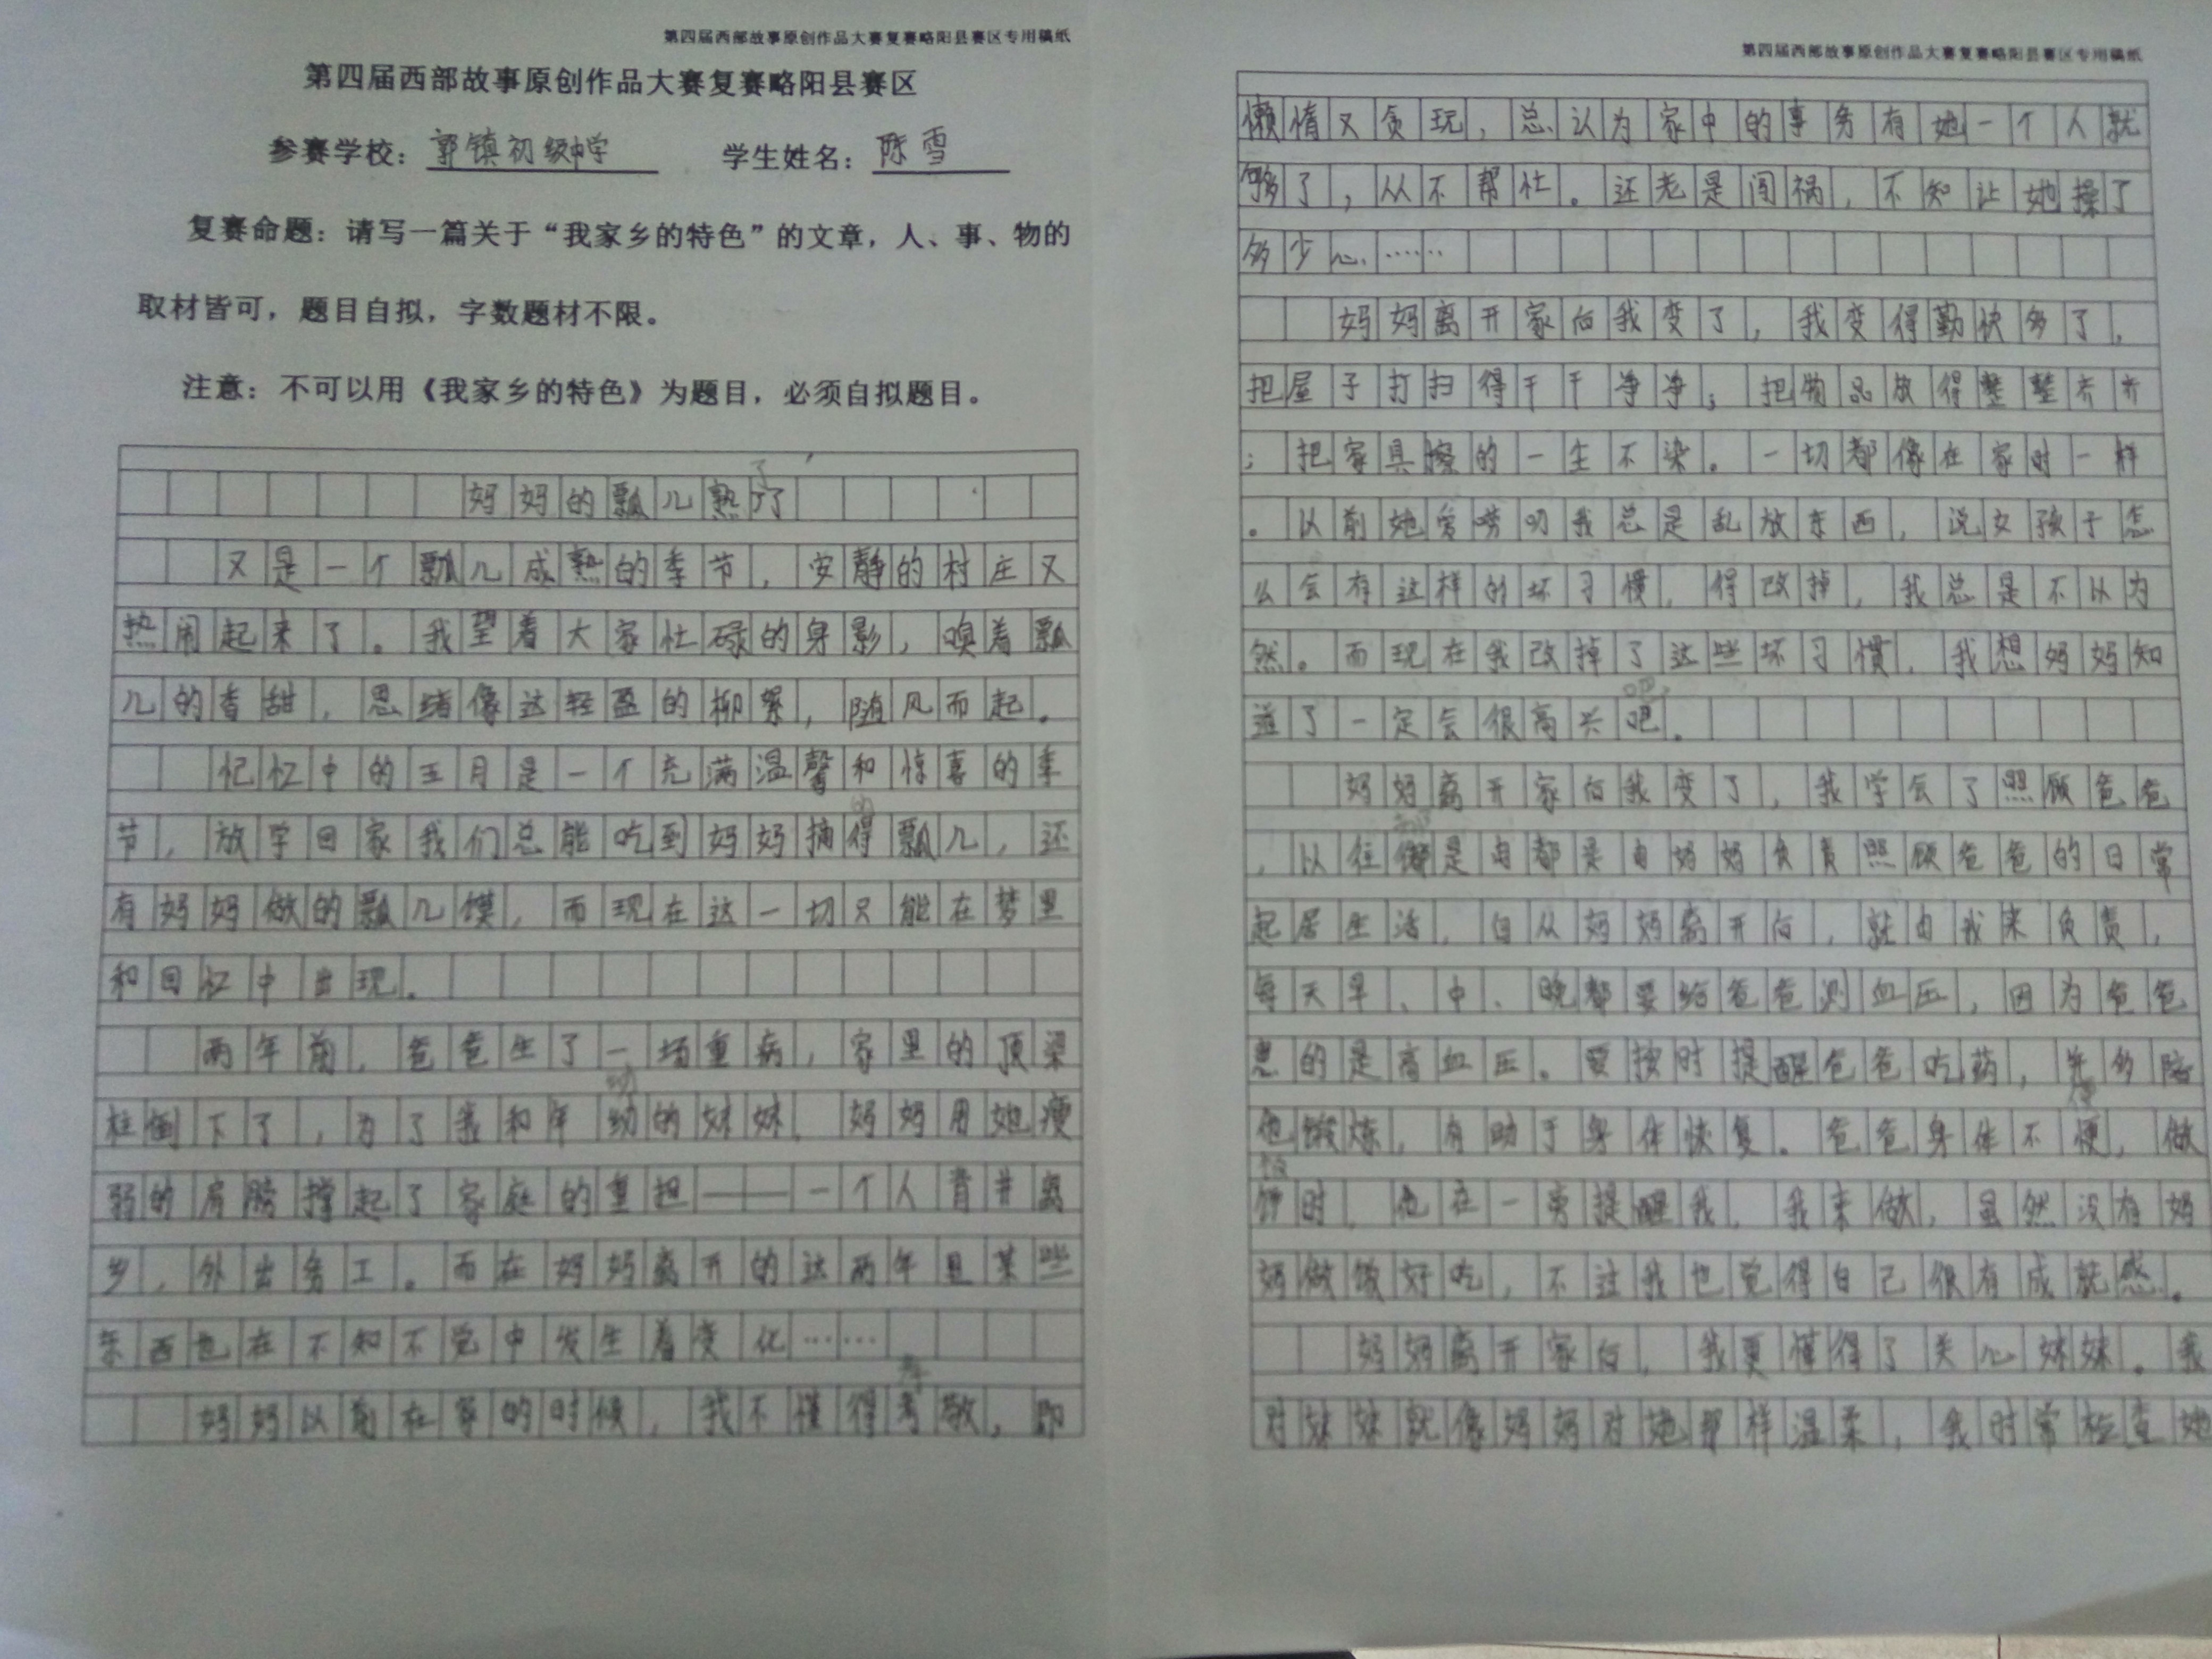 第四届西部故事原创作品大赛复赛略阳县赛区专用稿纸
第四届西部故事原创作品大赛复赛略阳县赛区
参赛学校：郭镇初级中学 学生姓名：陈雪
复赛命题：请写一篇关于“我家乡的特色”的文章，人、事、物的
取材皆可，题目自拟，字数题材不限。
注意：不可以用《我家乡的特色》为题目，必须自拟题目。
妈妈的瓢儿熟了
又是一个瓢儿成熟的季节，安静的村庄又
热闹起来了。我望着大家忙碌的身影，嗅着瓢
儿的香甜，思绪像这轻盈的柳絮，随风而起。
记忆中的五月是一个充满温馨和惊喜的季
节，放学回家我们总能吃到妈妈摘的瓢儿，还
有妈妈做的瓢儿馍，而现在这一切只能在梦里
和回忆中出现。
两年前，爸爸生了一场重病，家里的顶梁
柱倒下了，为了我和年幼的妹妹，妈妈用她瘦
弱的肩膀撑起了家庭的重担——一个人背井离
乡，外出务工。而在妈妈离开的这两年里某些
东西也在不知不觉中发生着变化……
妈妈以前在家的时候，我不懂得孝敬，即
第四届西部故事原创作品大赛复赛略阳县赛区专用稿纸
懒惰又贪玩，总认为家中的事务有她一个人就
够了，从不帮忙。还老是闯祸，不知让她操了
多少心……
妈妈离开家后我变了，我变得勤快多了，
把屋子打扫得干干净净；把物品放得整整齐齐
；把家具擦的一生不染。一切都像在家时一样
。以前她爱唠叨我总是乱放东西，说女孩子怎
么会有这样的坏习惯，得改掉，我总是不以为
然。而现在我改掉了这些坏习惯，我想妈妈知
道了一定会很高兴吧。
妈妈离开家后我变了，我学会了照顾爸爸
，以往都是由都是由妈妈负责照顾爸爸的日常
起居生活，自从妈妈离开后，就由我来负责，
每天早、中、晚都要给爸爸测血压，因为爸爸
患的是高血压。要按时提醒爸爸吃药，并多陪
他锻炼，有助于身体恢复。爸爸身体不便，做
饭时，他在一旁提醒我，我来做，虽然没有妈
妈做饭好吃，不过我也觉得自己很有成就感。
妈妈离开家后，我更懂得了关心妹妹。我
对妹妹就像妈妈对她那样温柔，我时常检查她